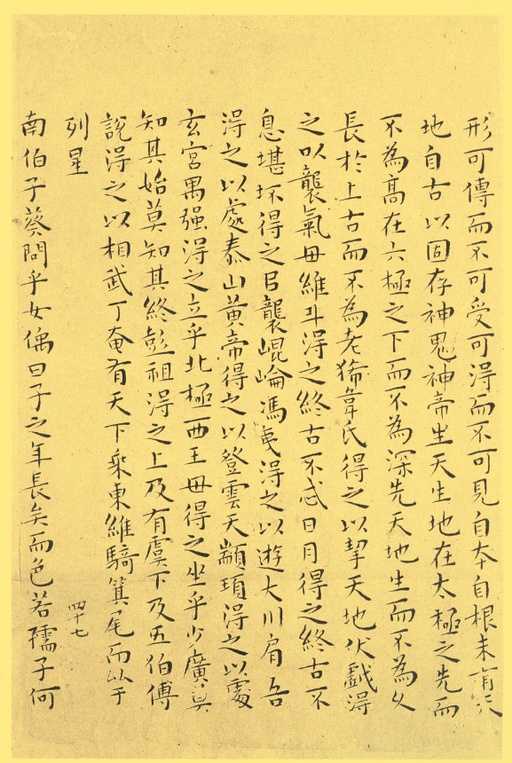 形可傳而不可受可得而不可見自本自根未有天
地自古以固存神鬼神帝生天生地在太極之先而
不為高在六極之下而不為深先天地生而不為久
長於上古而不為老狶韋氏得之以挈天地伏戲得
之以襲氣母維斗得之終古不忒日月得之終古不
息堪坏得之以襲崐崘馮夷得之以遊大川肩吾
得之以處泰山黃帝得之以登雲天顓頊得之以處
玄宮禺强得之立乎北極西王母得之坐乎少廣莫
知其始莫知其終彭祖得之上及有虞下及五伯傅
說得之以相武丁奄有天下乘東維騎箕尾而以于
列星
南伯子葵問乎女偊曰子之年長矣而色若孺子何
四十七